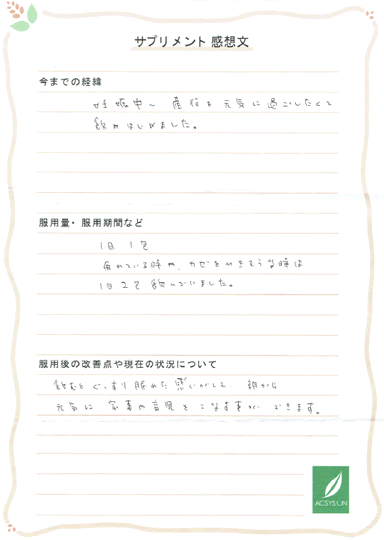 サプリメント 感想文
今までの経緯
妊娠中、産後も元気に過ごしたくて
飲みはじめました。
服用量・服用期間など
1日 1包
疲れている時や、カゼをひきそうな時は
1日2包 飲んでいました。
服用後の改善点や現在の状況について
飲むとぐっすり眠れた感じがして、朝から
元気に 家事や育児をこなす事が できます。
ACSYSリN